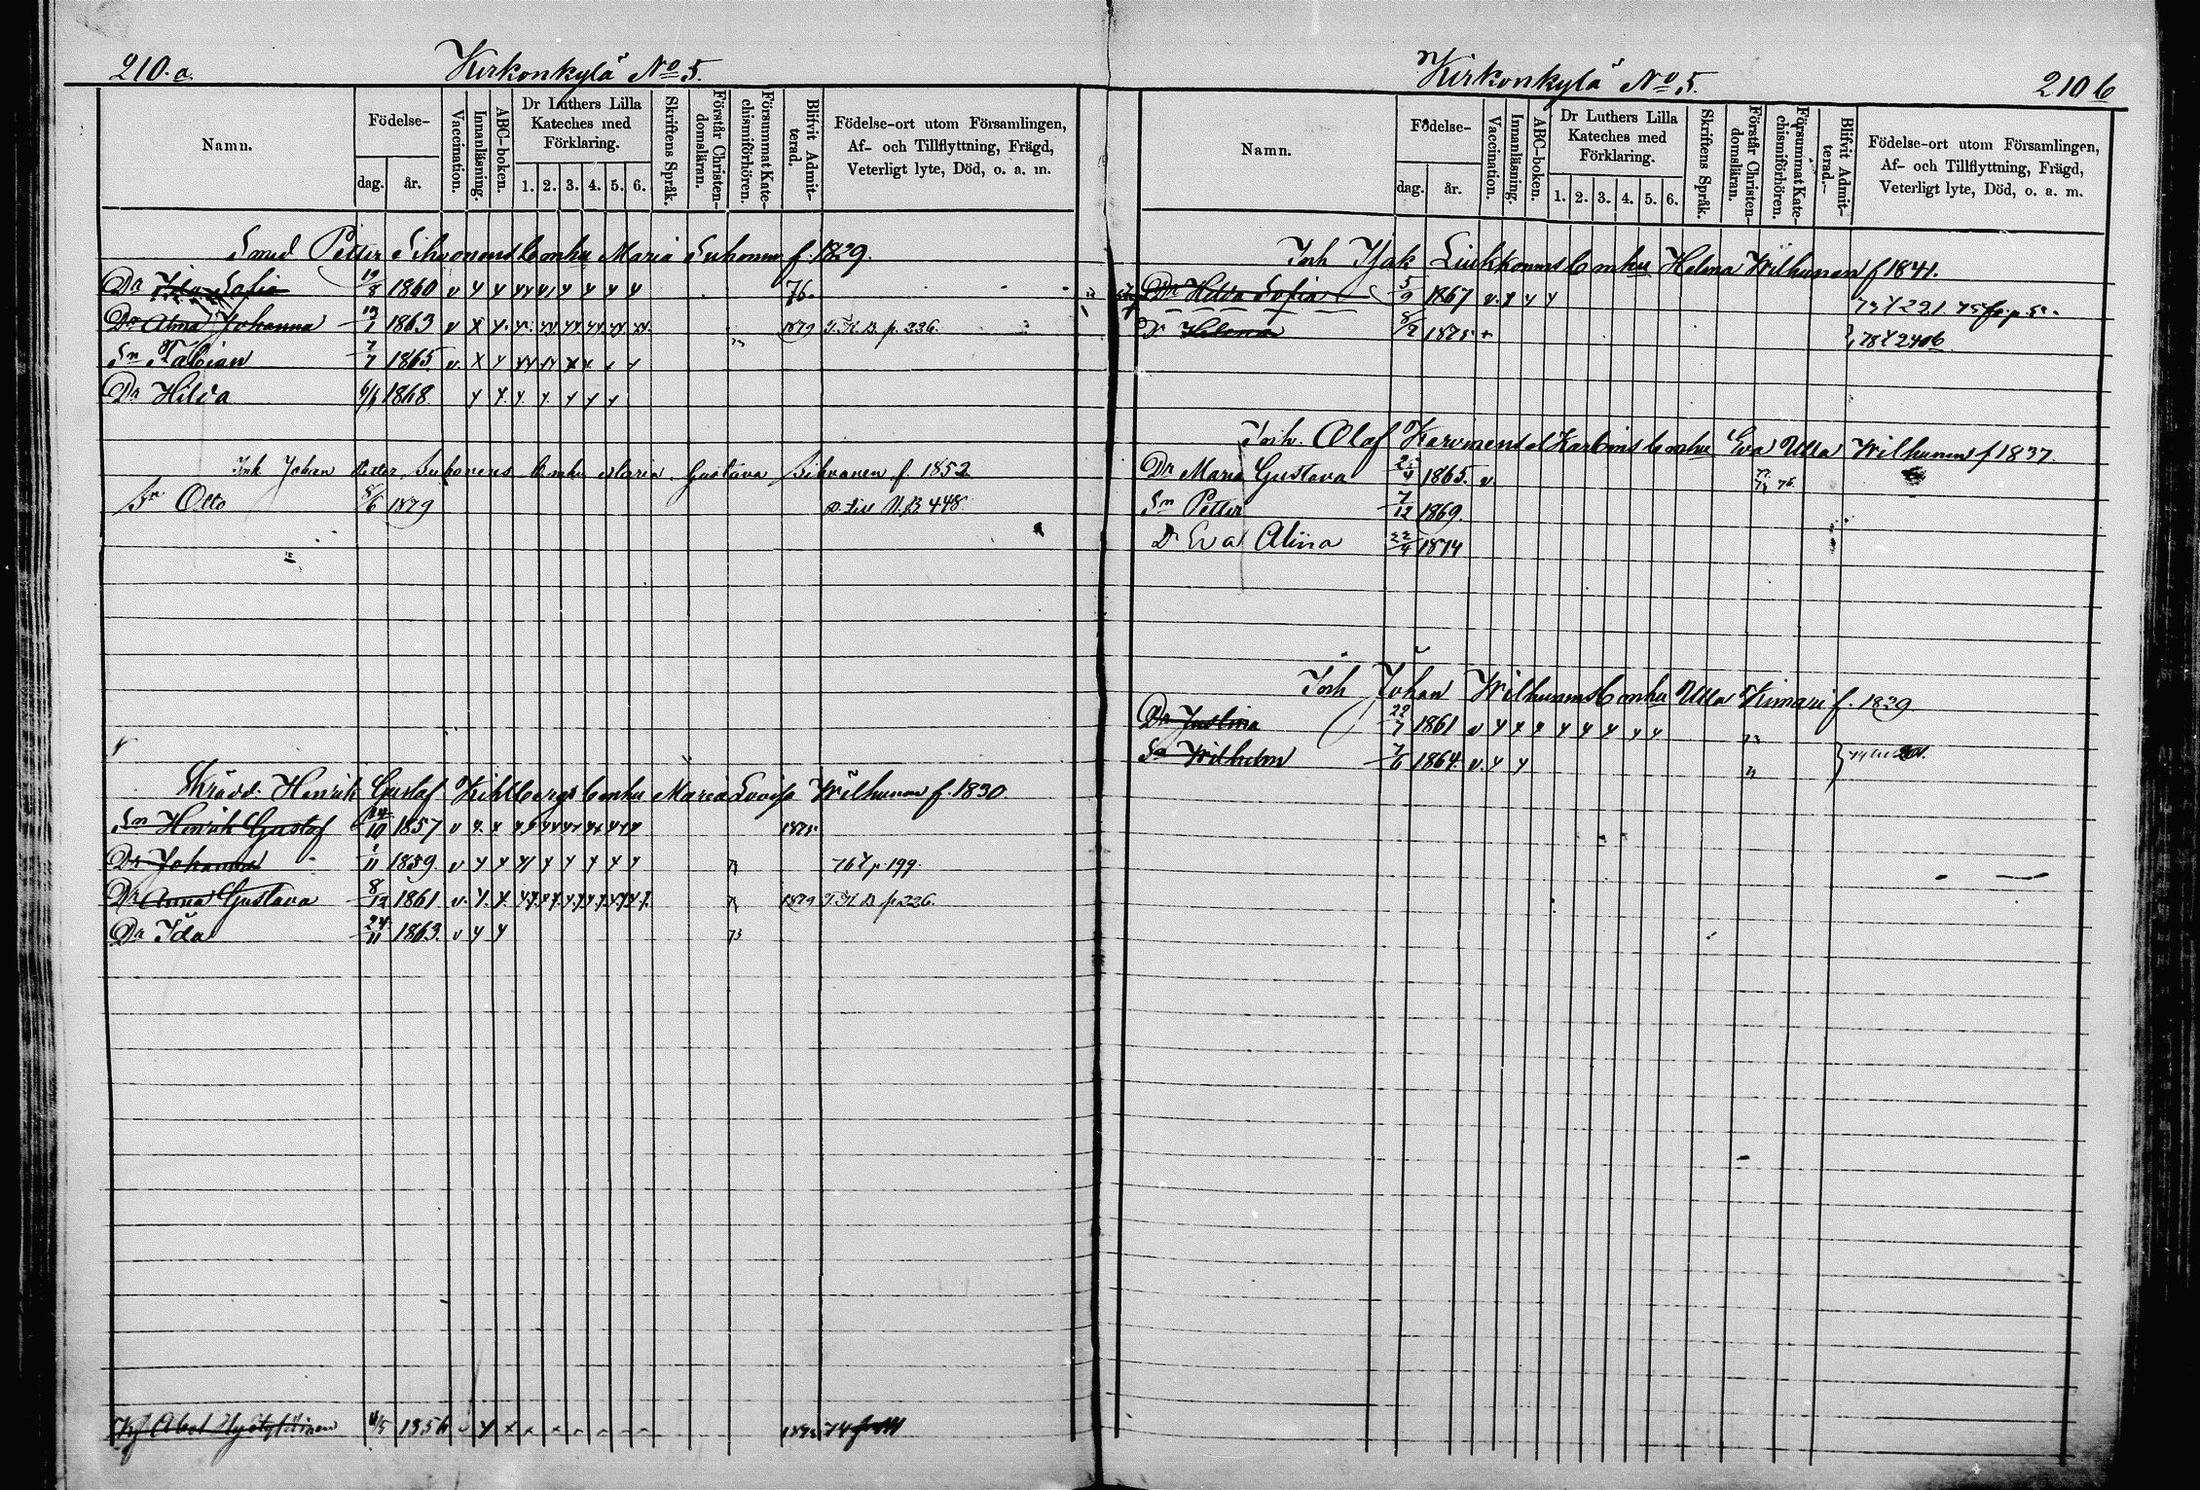 210.a.
Kirkonkylä No 5.
Namn.
Födelse-
dag.
år.
Vaccination.
Innanläsning.
ABC-boken.
Dr Luthers Lilla
Kateches med
Förklaring.
1. 2. 3. 4. 5. 6.
Skriftens Språk.
Förstår Christen-
domsläran.
Försummat Kate-
chismiförhören.
Blifvit Admit-
terad.
Födelse-ort utom Församlingen,
Af- och Tillflyttning, Frägd,
Veterligt lyte, Död, o. a. m.
Smed Petter Sihvonens b m hu Maria Suhonen f. 1829.
Dr Ida Sofia 19/8 1860 v 76.
Dr Alma Johanna 19/1 1863 v 1879 T.K.B. p. 236.
Sn Fabian 7/7 1865 v.
Dr Hilda 6/1 1868
Inh Johan Petter Suhonens b m hu Maria Gustava Sihvonen f. 1852
Sn Otto 5/6 1879 N.B. 448.
Skrädd. Henrik Gustaf Kihlbergs b m hu Maria Lovisa Wilhunen f. 1830
Sn Henrik Gustaf 1857 v 1875
Dr Johanna 1/11 1859. v 76 p. 199.
Dr Anna Gustava 8/12 1861 v. 1879 T.K.B. p. 226.
Dr Ida 24/11 1863. v 73
4/5 1856
Kirkonkylä No 5.
210 b
Namn.
Födelse-
dag.
år.
Vaccination.
Innanläsning.
ABC-boken.
Dr Luthers Lilla
Kateches med
Förklaring.
1. 2. 3. 4. 5. 6.
Skriftens Språk.
Förstår Christen-
domsläran.
Försummat Kate-
chismiförhören.
Blifvit Admit-
terad.
Födelse-ort utom Församlingen,
Af- och Tillflyttning, Frägd,
Veterligt lyte, Död, o. a. m.
Inh Isak Liukkonens b m hu Helena Wilhunen f 1841.
Dr Hilda Sofia 5/9 1867 v.
Dr Helena 1875
Inh. Olof b m hu Eva Ulla Wilhunen f 1837.
Dr Maria Gustava 1865. v. 76.
Sn Petter 7/12 1869.
Dr Eva Alina 22/4 1874
Inh Johan Wilhunens b m hu Ulla Kimari f. 1829
Dr Justina 29/7 1861 v
Sn Wilhelm 7/6 1864. v.